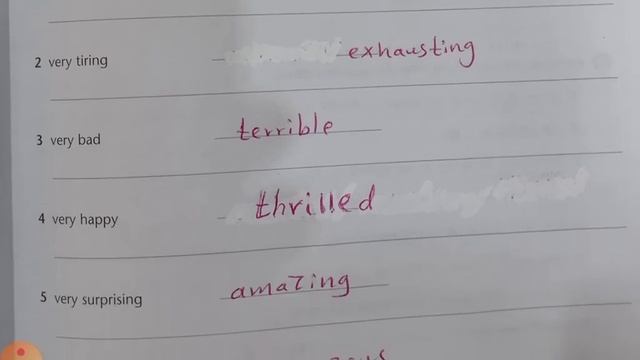 2 very tiring exhausting
3 very bad terrible
4 very happy thrilled
5 very surprising amazing